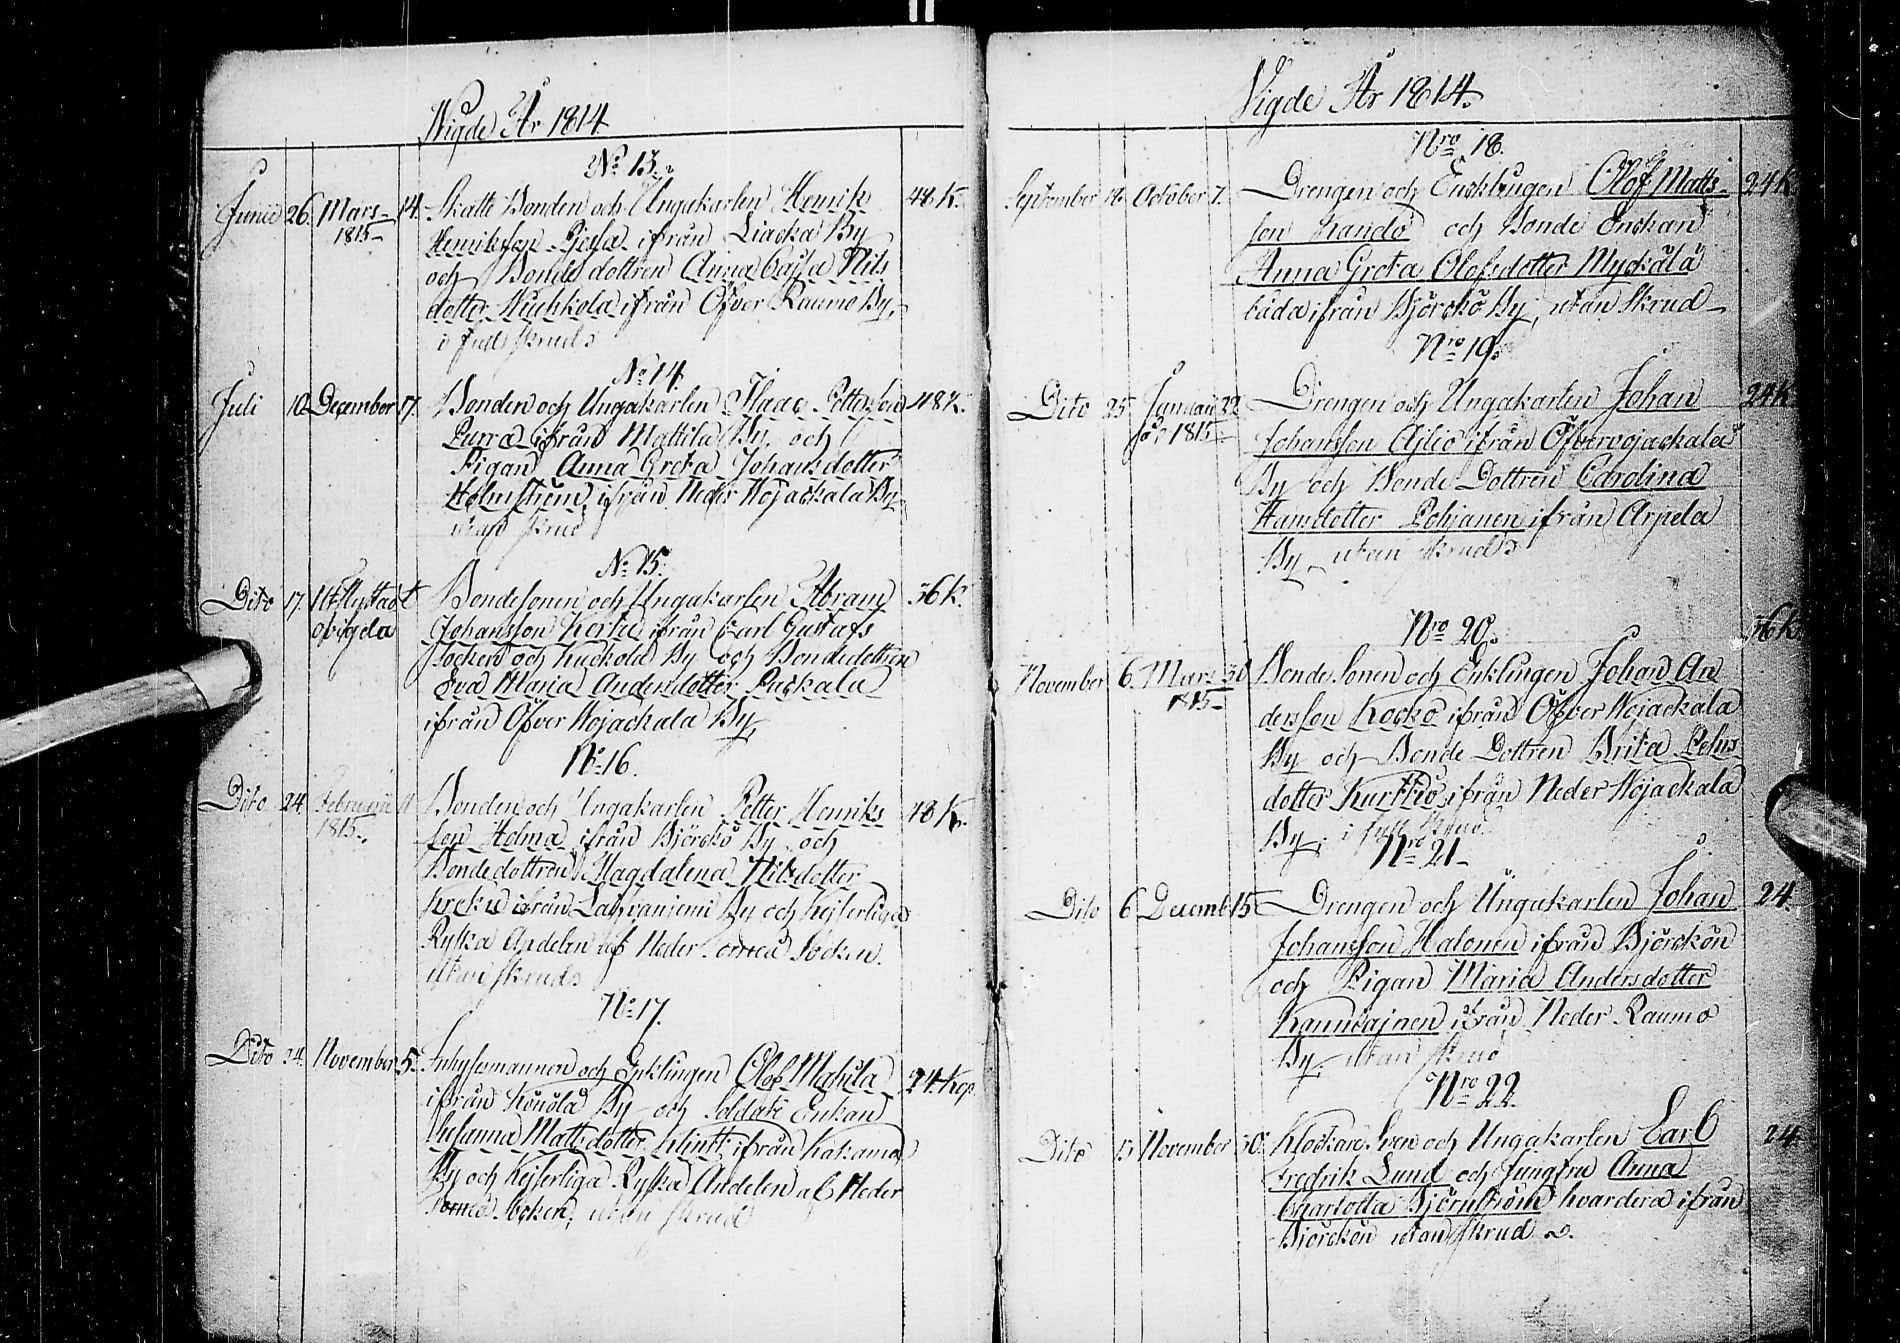 Wigde År 1814
No 13.
Junii 26. Mars 14. Skatte Bonden och Ungakarlen Henrik 48 K.
1815 Henriksson ifrån Liacka By
och Bonde dottren Anna Cajsa Nils
dotter ifrån Öfver Raumo By,
i full skrud
No 14.
Juli 10 December 17. Bonden och Ungakarlen Isaac Pettersson 48 K.
Purra ifrån Mattila By, och
Pigan Anna Greta Johansdotter
Holmström, ifrån Neder Wojackala By
utan skrud
No 15.
Dito 17. Utflyttadt Bondesonen och Ungakarlen Abram 36 K.
ovigda Johansson ifrån Carl Gustafs
socken och Kuckola By och Bondedottren
Eva Maria Andersdotter Packala
ifrån Öfver Wojackala By,
No 16.
Dito 24. Februarii Bonden och Ungakarlen Petter Henriks 48 K.
1815. son Holma ifrån Björckö By och
Bondedottren Magdalena Nilsdotter
ifrån Laivaniemi By och Kejserliga
Ryska Andelen af Neder Torneå Socken
utan skrud
No 17.
Dito 24. November 5. Inhysesmannen och Enklingen Olof Makila 24 Kop
ifrån Könölä By och Soldate Enkan
Susanna Mattsdotter Klinft ifrån Kakama
By och Kejserliga Ryska Andelen af Neder
Torneå Socken, utan skrud
Vigde År 1814.
Nro 18.
September October 7. Drengen och Encklingen Olof Matts- 24 K
son Kando och Bonde Enckan
Anna Greta Olofsdotter Myckälä
båda ifrån Björckö By, utan Skrud
Nro 19.
Dito 25 Januari 22 Drengen och Ungakarlen Johan 24 K
1815. Johansson Ajlio ifrån Öfvervojackala
By och Bonde Dottren Carolina
Hansdotter Pohjanen ifrån Arpela
By utan skrud
Nro 20.
36 K
November 6. Mars 30 Bonde Sonen och Enklingen Johan An
1815 dersson Kocko ifrån Öfver Wojackala
By och Bonde Dottren Brita Pehrs
dotter Kurttio ifrån Neder Wojackala
By, i full skrud.
Nro 21
Dito 6 Decemb 15 Drengen och Ungakarlen Johan 24.
Johansson Halonen ifrån Björckön
och Pigan Maria Andersdotter
ifrån Neder Raumo
By, utan skrud
Nro 22.
Dito November 30. Klockare Sven och Ungakarlen Carl 24
Fredrik Lund och Jungfru Anna
Charlotta Björnström hvardera ifrån
Björckön utan skrud